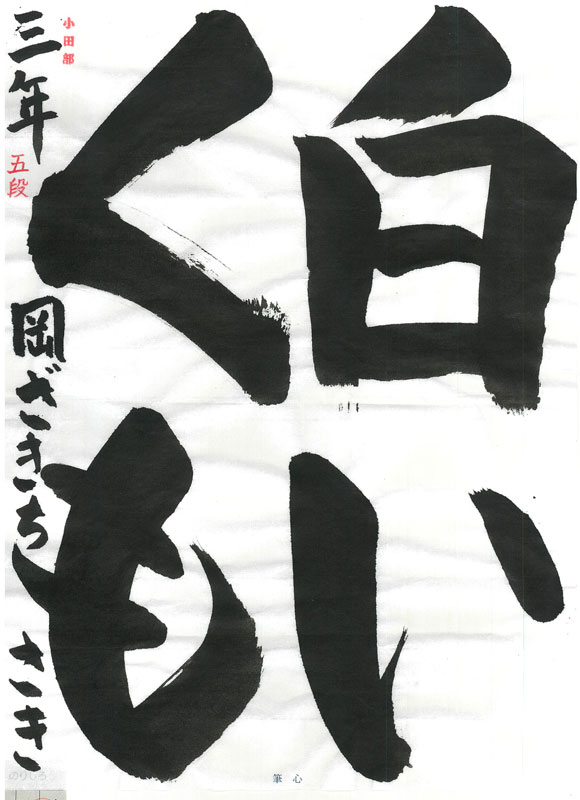 白い
くも
三年
岡ざきちさき
小田部
五段
心筆
のりしろ